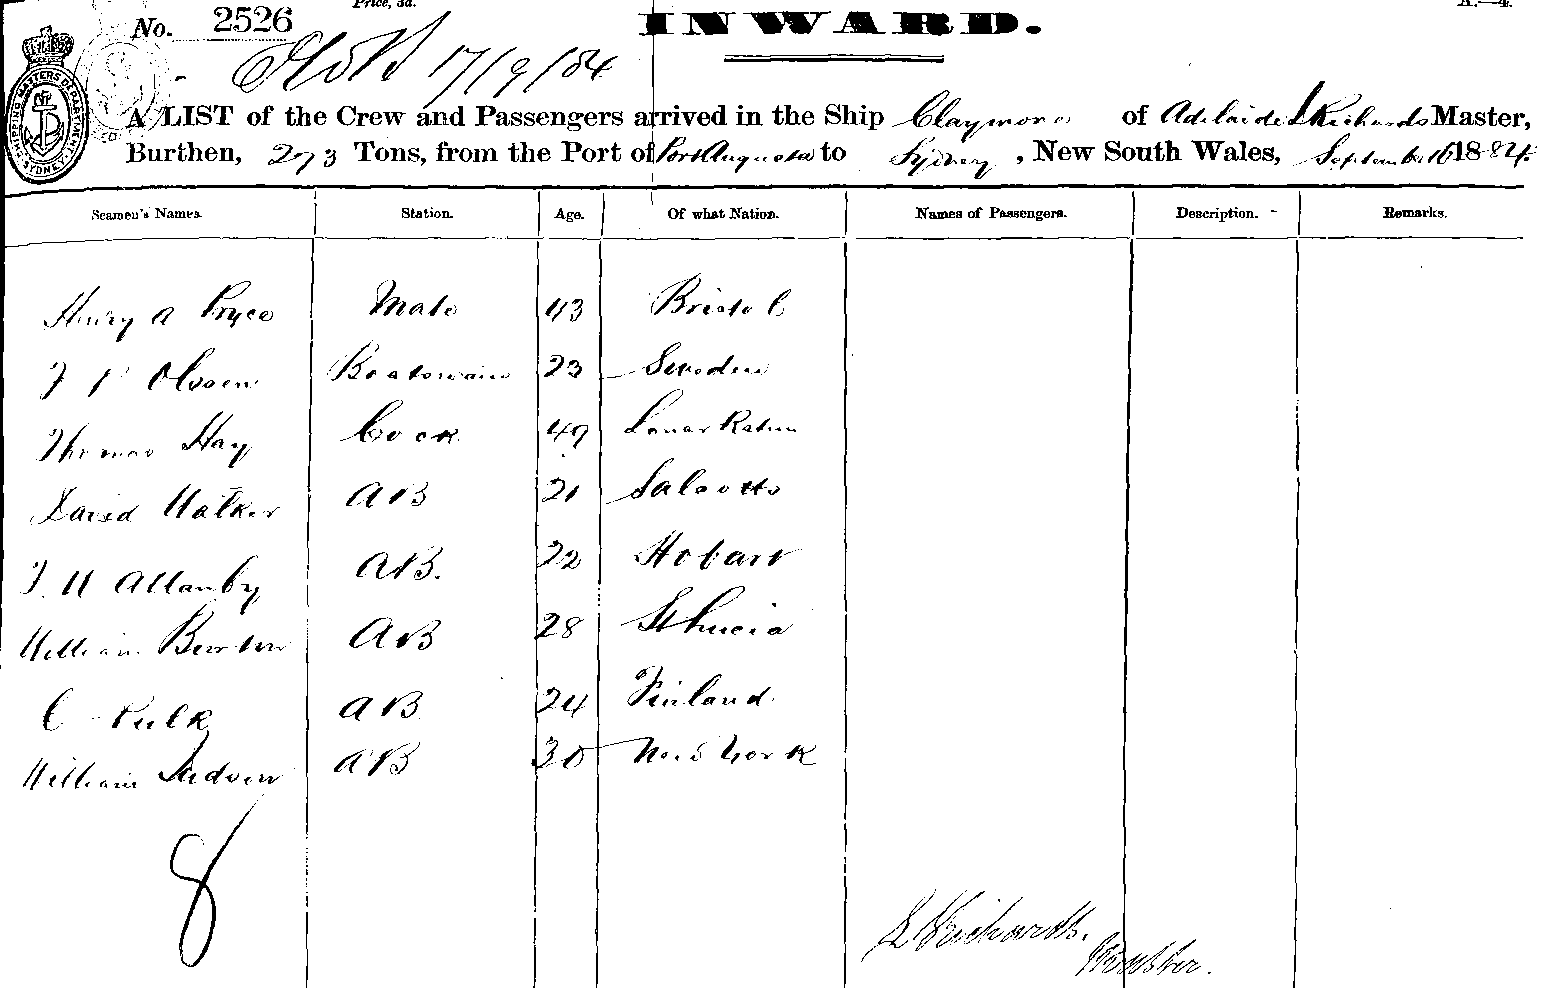 Price, 3d.
A.—4.
No. 2526
INWARD.
17/9/84
SHIPPING MASTERS DEPARTMENT SYDNEY
A LIST of the Crew and Passengers arrived in the Ship Claymore of Adelaide Richards Master,
Burthen, 273 Tons, from the Port of Port Augusta to Sydney, New South Wales, September 16 1884
Seamen's Names. Station. Age. Of what Nation. Names of Passengers. Description. Remarks.
Henry A Pryce Mate 43 Bristol
J P Olssen Boatswain 23 Sweden
Thomas Hay Cook 49
David Walker AB 21 Salcotts
J. H Allanby AB. 22 Hobart
William Burton AB 28 St Lucia
C AB 24 Finland
William AB 30 New York
8
Richards.
Master.